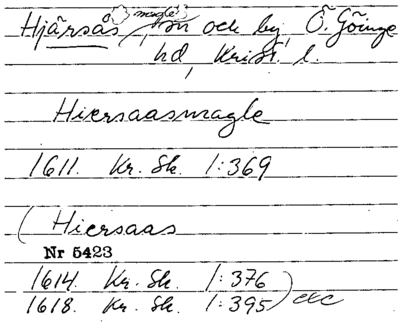 Hjärsås magle, sn och by, Ö. Göinge
hd, Krist. l.
Hiersaasmagle
1611. Kr. Sk. 1:369
( Hiersaas
Nr 5423
1614. Kr. Sk. 1:376
1618. Kr. Sk. 1:395) etc